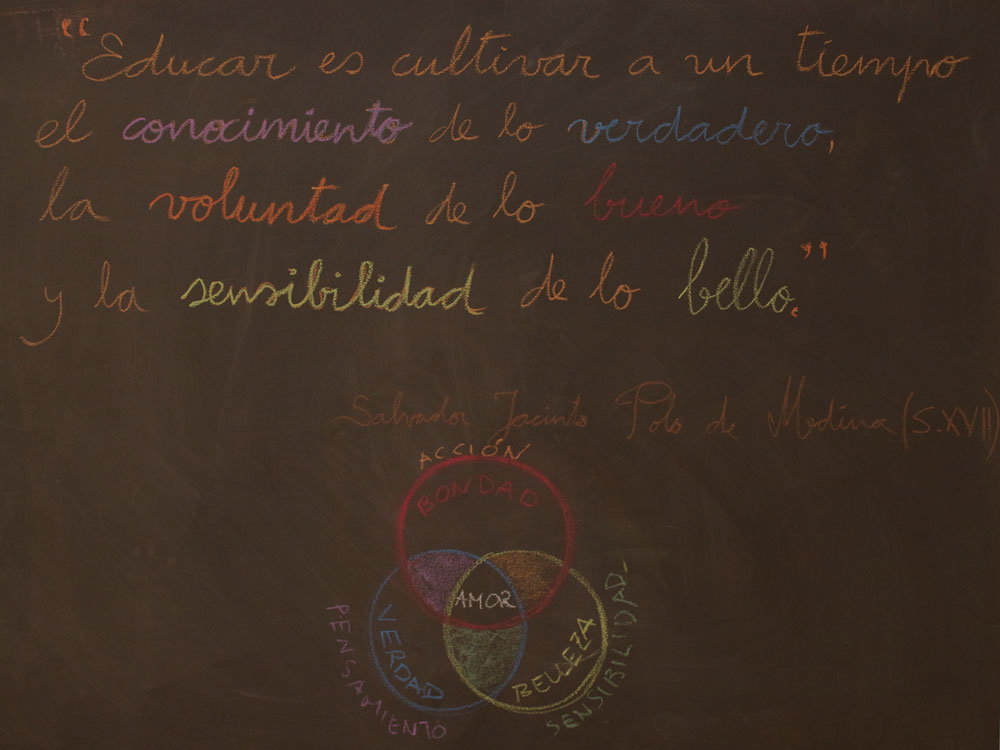 “Educar es cultivar a un tiempo
el conocimiento de lo verdadero,
la voluntad de lo bueno
y la sensibilidad de lo bello.”
Salvador Jacinto Polo de Medina (S.XVII)
ACCIÓN
BONDAD
AMOR
VERDAD
BELLEZA
PENSAMIENTO
SENSIBILIDAD